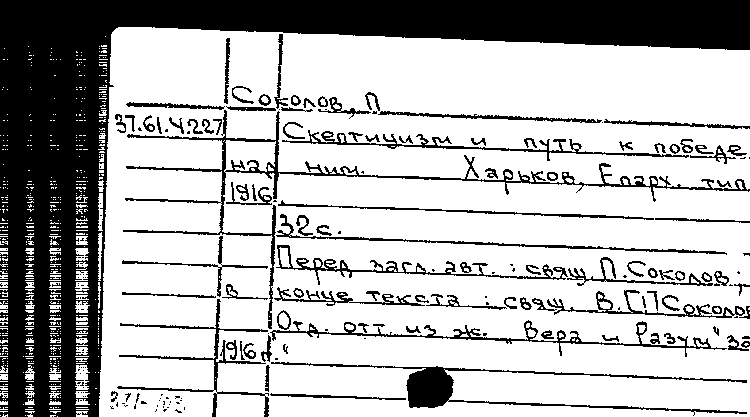 Соколов, П
37.61.4.227 Скептицизм и путь к победе
над ним. Харьков, Епарх. тип.
1916.
32 с.
Перед загл. авт. : свящ П. Соколов;
в конце текста : свящ. В.[!] Соколов
"Отд. отт из ж. „Вера и Разум" за
1916 г."